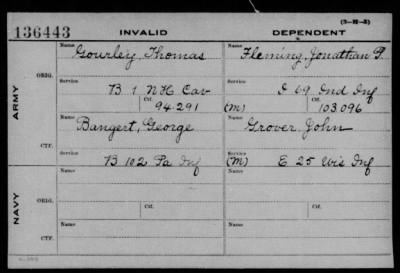 (3-16-3)
136443 INVALID DEPENDENT
Name Name
Gourley, Thomas Fleming, Jonathan P.
ORIG.
Service Service
B 1 N.H. Cav I 69 Ind Inf
Ctf. Ctf.
94.291 (m) 103096
ARMY
Name Name
Bangert, George Grover, John
CTF.
Service Service
B 102 Pa Inf (m) E 25 Wis Inf
Name Name
ORIG.
Ctf. Ctf.
NAVY
Name Name
CTF.